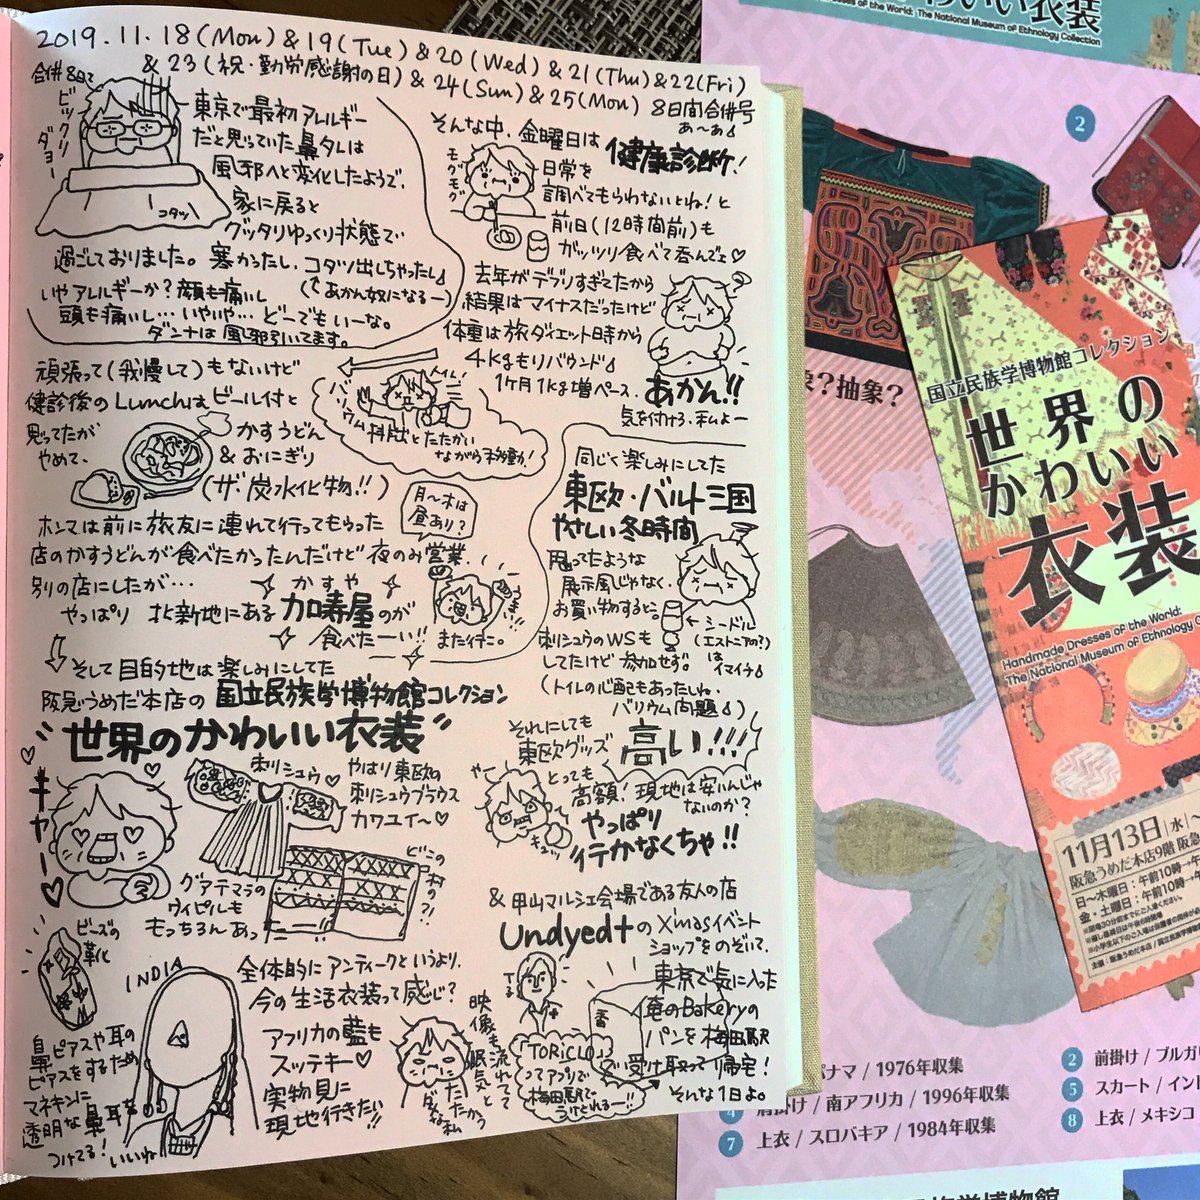 2019.11.18(Mon)&19(Tue)&20(Wed)&21(Thu)&22(Fri)
&23(祝・勤労感謝の日)&24(Sun)&25(Mon) 8日間合併号
あ〜あ
合併8日て
ビックリダョー
東京で最初アレルギー
だと思っていた鼻タレは
風邪へと変化したようで、
家に戻ると
グッタリゆっくり状態で
過ごしておりました。寒かったし、コタツ出しちゃったし
(←あかん奴になるー)
いやアレルギーか?顔も痛いし
頭も痛いし…いやいや…どーでもいーな。
ダンナは風邪引いてます。
コタツ
そんな中、金曜日は
健康診断!
モグモグ
日常を
調べてもらわないとね!と
前日(12時間前)も
ガッツリ食べて呑んでェ♡
去年がデブりすぎてたから
結果はマイナスだったけど
体重は旅ダイエット時から
4kgもリバウンド
1ヶ月1kg増ペース。
あかん!!
気を付けろ、私よー
頑張って(我慢して)もないけど
健診後のLunchはビール付と
思ってたが
やめて、
かすうどん
&おにぎり
(ザ・炭水化物!!)
トイレ!
バリウム
とたたかい
ながら移動!
ホンマは前に旅友に連れて行ってもらった
店のかすうどんが食べたかったんだけど夜のみ営業、
別の店にしたが…
月〜木は
昼あり?
やっぱり 北新地にある
かすや
加寿屋のが
食べたーい!!
うまい!!
また行こ。
そして目的地は楽しみにしてた
阪急うめだ本店の国立民族学博物館コレクション
"世界のかわいい衣装"
キャー♡
刺シュウ♡
やはり東欧の
刺シュウブラウス
カワユイ〜♡
グアテマラの
ウィピルも
もっちろんあっ
どこの村の?!
ビーズの靴
INDIA
鼻ピアスや耳の
ピアスをするため
マネキンに
透明な鼻耳を
つけてる!いいね
全体的にアンティークというより、
今の生活衣装って感じ?
アフリカの藍も
ステキー♡
実物見に
現地行きたい!!
映像も流れてて
眠気と
たたかう
ダメな私
同じく楽しみにしてた
東欧・バルト三国
やさしい冬時間
思ってたような
展示風じゃなく、
お買い物するとこ。
刺シュウのWSも
してたけど参加せず。
(トイレの心配もあったしね、
バリウム問題)
←シードル
(エストニアの?)
は
イマイチ
それにしても
東欧グッズ
高い!!!
とっても
高額!現地は安いんじゃ
ないのか?
やっぱり
行かなくちゃ!!
&甲山マルシェ会場である友人の店
Undyed+のX'masイベント
ショップをのぞいて、
東京で気に入った
のBakeryの
パンを梅田駅
で受け取って帰宅!
そんな1日よ。
"TORiCLO"
ってアプリで
梅田駅で
うけとれるー!!
Dresses of the World: The National Museum of Ethnology Collection
いい衣装
2
象?抽象?
国立民族学博物館コレクション
世界の
かわいい
衣装
Handmade Dresses of the World:
The National Museum of Ethnology Collection
11月13日|水|〜
阪急うめだ本店9階 阪急
日〜木曜日:午前10時〜午
金・土曜日:午前10時〜午
パナマ / 1976年収集
4 肩掛け / 南アフリカ / 1996年収集
7 上衣 / スロバキア / 1984年収集
2 前掛け / ブルガリ
5 スカート / イント
8 上衣 / メキシコ